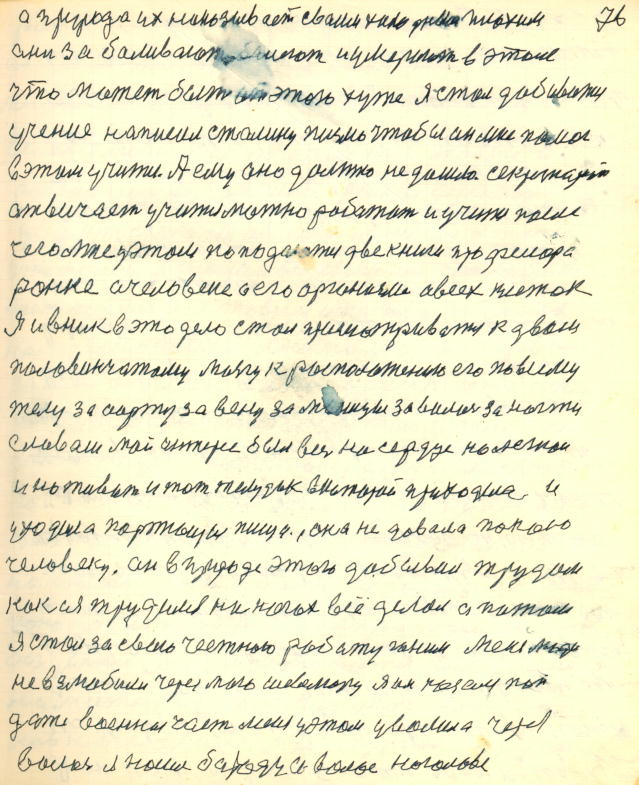 а природа их наказывает своим холодным плохим 76
ани за баливают балеют и умирают в этом
что может быть от этого хуже я стал добиваться
учение написал сталину письмо чтобы ан мне помог
в этом учитя. А ему оно должно не дошло. секретарят
атвичает учитя можно работат и учитя после
чего мне в этом попадаются две книги профессора
о человеке о его организме о всех клеток
я и вник в это дело стал присматриватя к двом
половинчатому мозгу к расположению его по всему
телу за аорту за вену за мышцы за волоса за ногти
словам мой интерес был вея на сердце на легкои
и на живат и тот желудык в которой приходила. и
уходила портющия пища., она не довала покою
человеку. ан в природе этого добывал трудом
как и я трудился на ногах всё делал а патом
я стал за свою честною работу гоним меня люди
не взлюбили через мого я им
даже военная част меня в этом уволила через
волоса я носил бароду и волос на голове